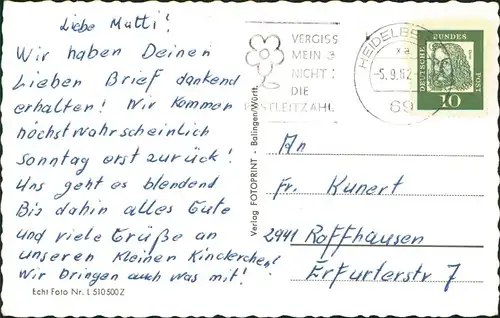 Liebe Mutti!
Wir haben Deinen
Lieben Brief dankend
erhalten! Wir kommen
höchstwahrscheinlich
Sonntag erst zurück!
Uns geht es blendend
Bis dahin alles Gute
und viele Grüße an
unseren kleinen Kinderchen!
Wir bringen auch was mit!
Echt Foto Nr. L 510500Z
Verlag FOTOPRINT - Balingen/Württ.
VERGISS
MEIN
NICHT
DIE
POSTLEITZAHL
HEIDELBE
-5.9.62
69
DEUTSCHE BUNDES POST
10
An
Fr. Kunert
2941 Roffhausen
Erfurterstr 7